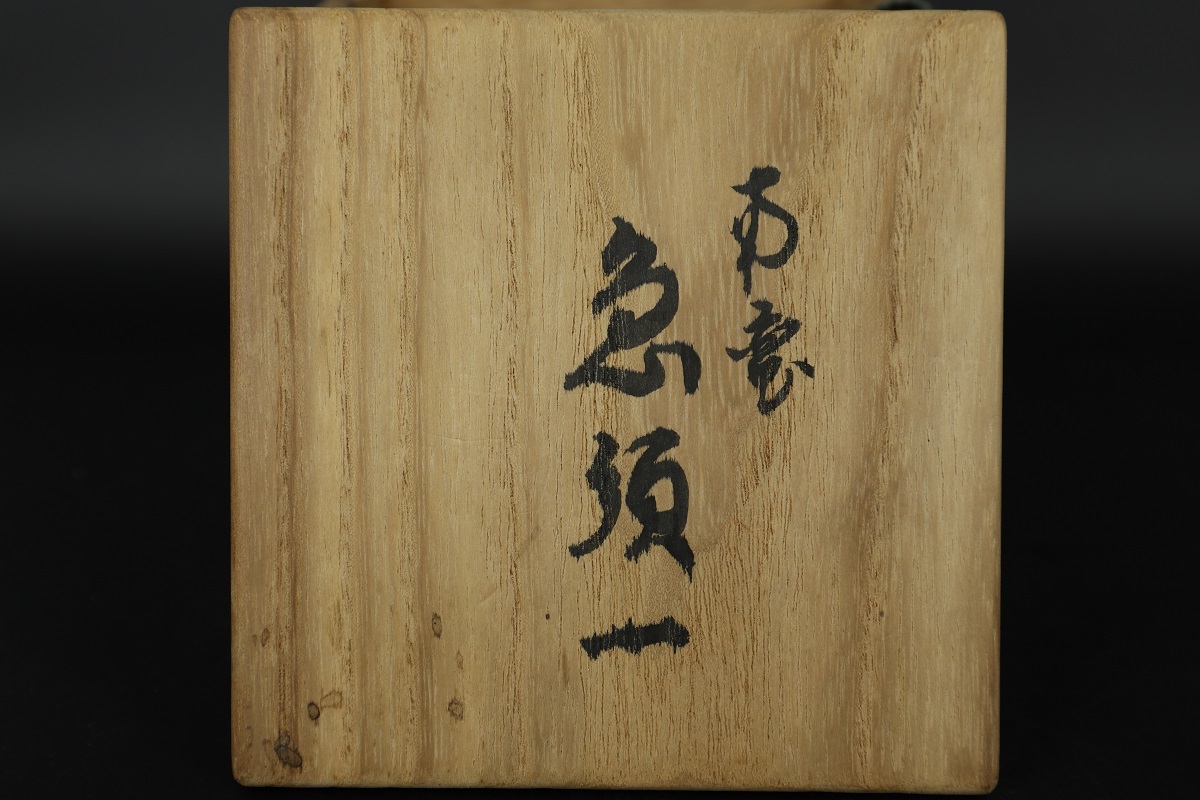 南蛮
急須一